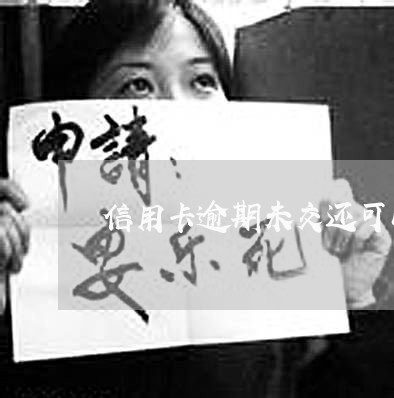 申請：
信用卡逾期未交还可
安乐死